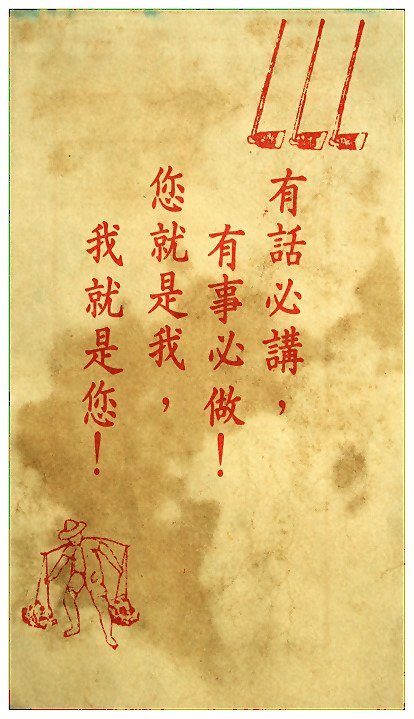 有話必講，
有事必做！
您就是我，
我就是您！